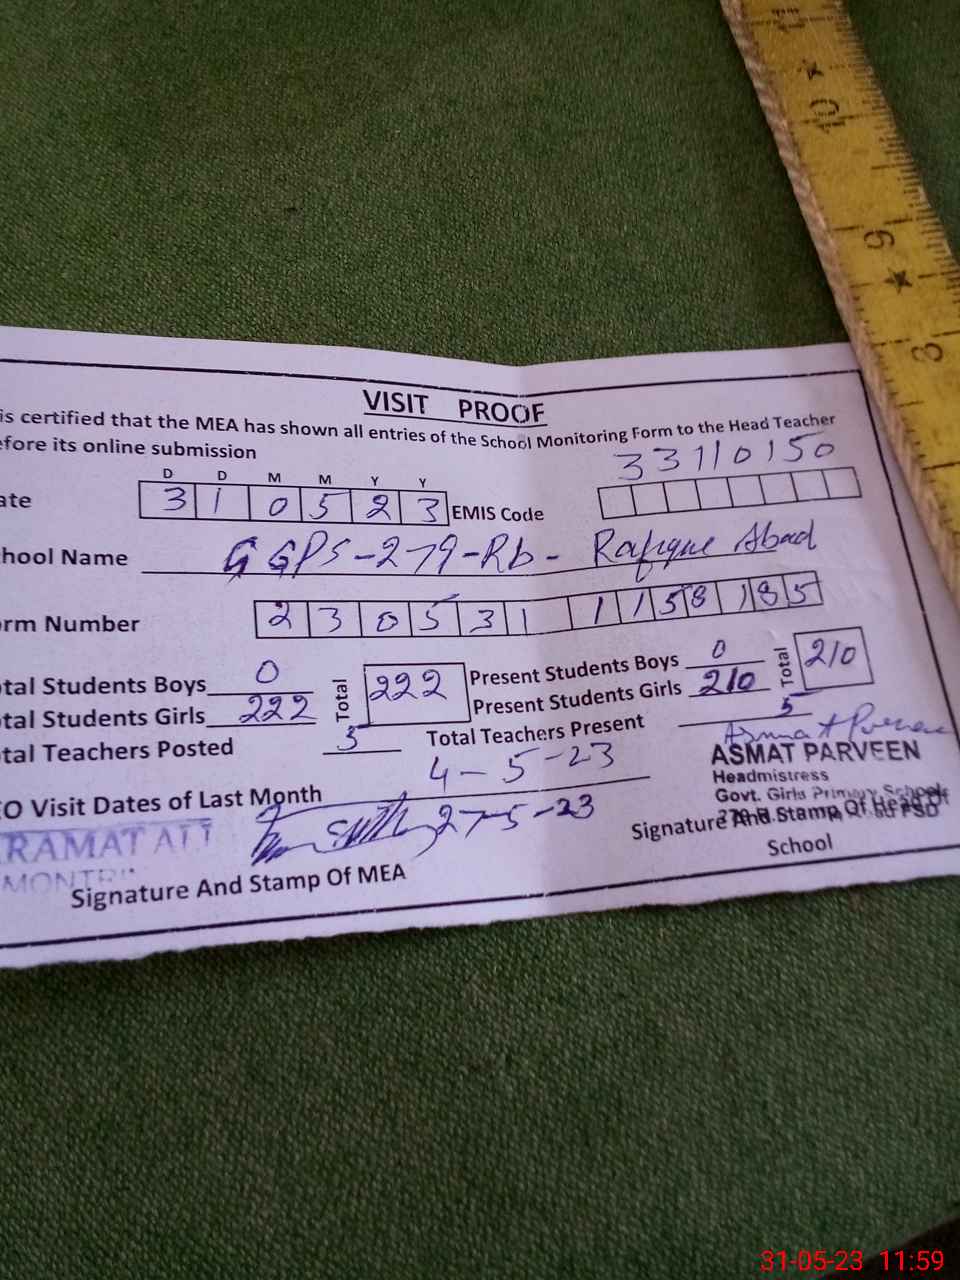 VISIT PROOF
is certified that the MEA has shown all entries of the School Monitoring Form to the Head Teacher
efore its online submission
33110150
D D M M Y Y
ate 3 1 0 5 2 3 EMIS Code
chool Name GGPS-279-Rb- Rafique Abad
orm Number 2 3 0 5 31 1 1 1 58 1 8 5
tal Students Boys 0 Total 222 Present Students Boys 0 Total 210
tal Students Girls 222 Present Students Girls 210
tal Teachers Posted 5 Total Teachers Present 5
Asmat Parveen
ASMAT PARVEEN
Headmistress
Govt. Girls Primary School
EO Visit Dates of Last Month 4-5-23
27-5-23
RAMAT ALI
Signature And Stamp Of MEA
Signature And Stamp Of Head Of
School
10
9
8
31-05-23 11:59